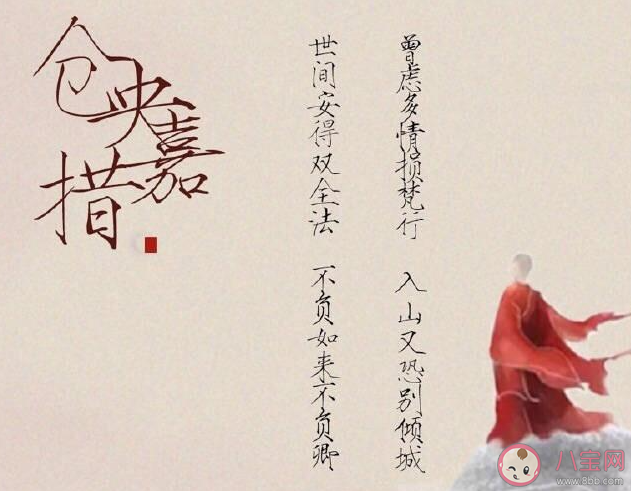 仓央嘉措
曾虑多情损梵行 入山又恐别倾城
世间安得双全法 不负如来不负卿
八宝网
www.8bb.com